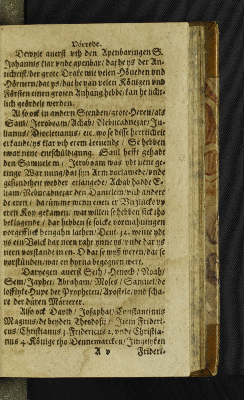 Vörrede.
Dewyle auerst vth den Apenbaringen S.
Johannis klar vnde apenbar / dat he ys der An-
tichrist / der grote Drake mit velen Höueden vnd
Hörnern / dat ys / dat he van velen Königen vnd
Försten einen groten Anhang hebbe / kan he licht-
lich geördelt werden.
Also ock in andern Stenden / grote Heren / als
Saul / Jeroboam / Achab / Nebucadnezar / Ju-
lianus / Diocletianus / etc. wo se desse herrlicheit
erlande / ys klar vth erem leuende / Se hebben
ewar nene entschüldigung. Saul hefft gehadt
den Samuelem / Jeroboam was ydt nicht ge-
ringe War nung / dat syn Arm vorlamede / vnde
gesundtheit wedder erlangede / Achab hadde E-
liam / Nebucadnezar den Danielem / vnd ander
de eren / darümme wenn enen
eren Kop gekamen, wat willen se hebben sick tho
beklagende / dar hebben se solcke vormahningen
vorgefflick hengahn lathen / Deut. 32.weinte ydt
ys ein Volck dar neen raht ynne ys / vnde dar ys
neen vorstandt in en. O dat se wyß weren / dat se
vorstünden / wat en hyrna begegnen wert.
Daryegen auerst Seth / Henoch / Noah /
Sem / Japhet / Abraham / Moses / Samuel / de
lofflyke Hupe der Propheten / Apostele / vnd scha-
re der düren Märterer.
Also ock David / Josaphat / Constantinus
Magnus / de beyden Theodosij / Item Frideri-
cus / Christianus 3. Fridericus 2. vnde Christia-
nus 4. Könige tho Dennemarcken / Jmgelyken
A v Frideri-